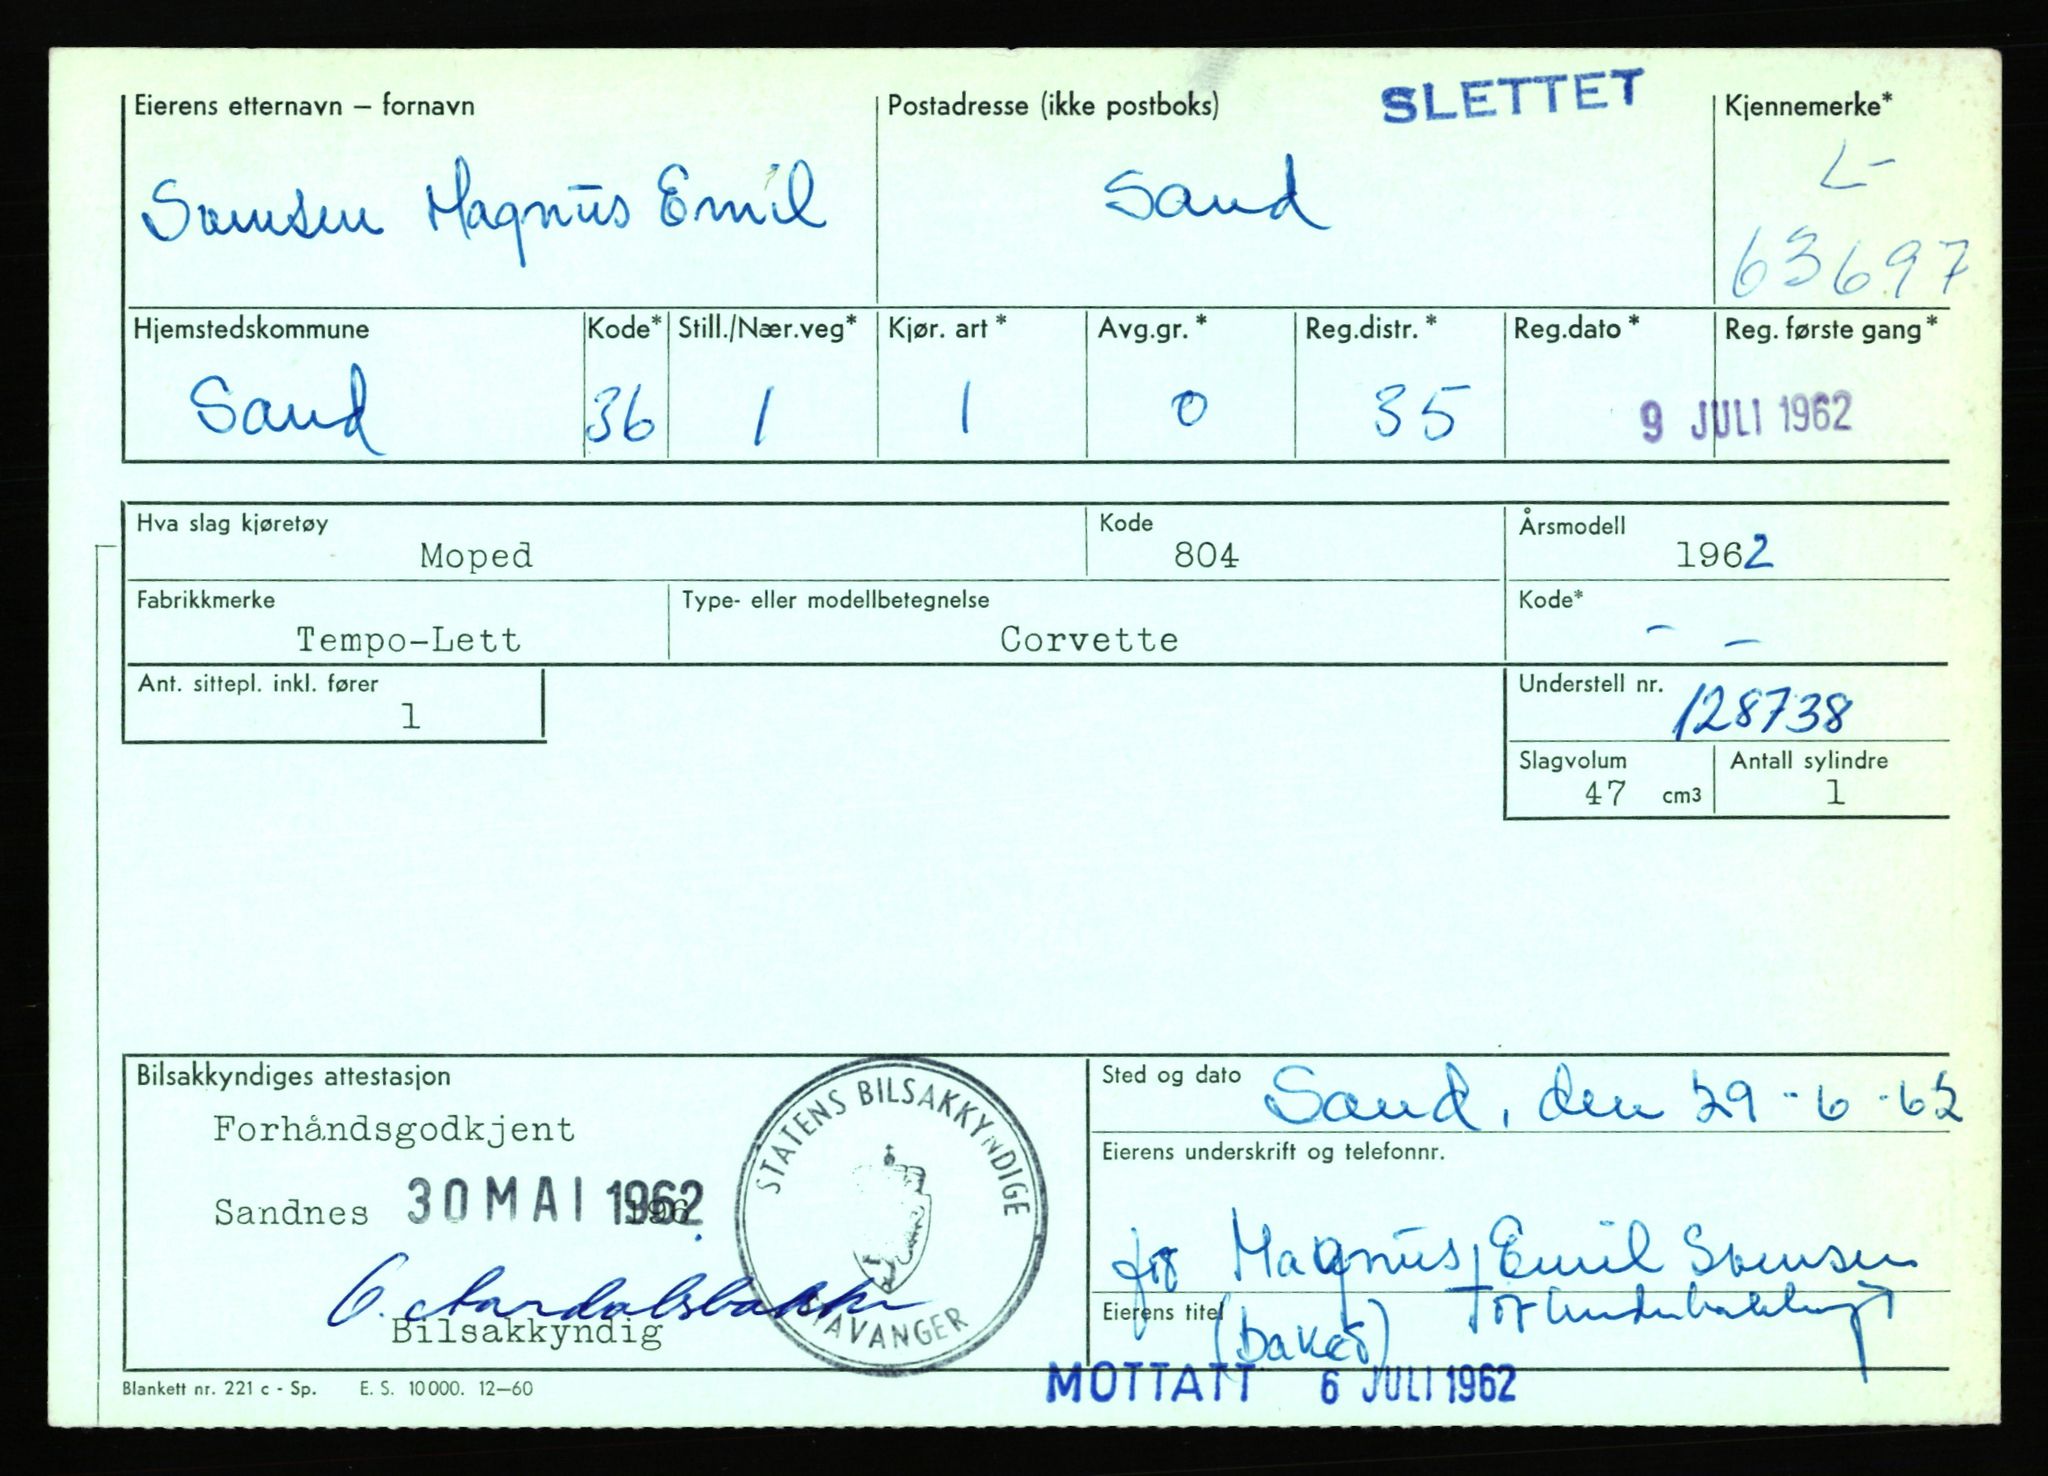 SLETTET
Eierens etternavn – fornavn
Postadresse (ikke postboks)
Kjennemerke*
Magnus Emil
Sand
L-
63697
Hjemstedskommune
Kode*
Still./Nær.veg*
Kjør. art *
Avg.gr. *
Reg.distr. *
Reg.dato *
Reg. første gang *
Sand
36
1
1
0
35
9 JULI 1962
Hva slag kjøretøy
Kode
Årsmodell
Moped
804
1962
Fabrikkmerke
Type- eller modellbetegnelse
Kode*
Tempo-Lett
Corvette
– –
Ant. sittepl. inkl. fører
1
Understell nr.
128738
Slagvolum
Antall sylindre
47 cm3
1
Bilsakkyndiges attestasjon
Forhåndsgodkjent
Sandnes 30 MAI 1962
Bilsakkyndig
STATENS BILSAKKYNDIGE
STAVANGER
Sted og dato
Sand, den 29-6-62
Eierens underskrift og telefonnr.
for Magnus Emil
Eierens titel
(baker)
MOTTATT 6 JULI 1962
Blankett nr. 221 c - Sp. E. S. 10000. 12–60